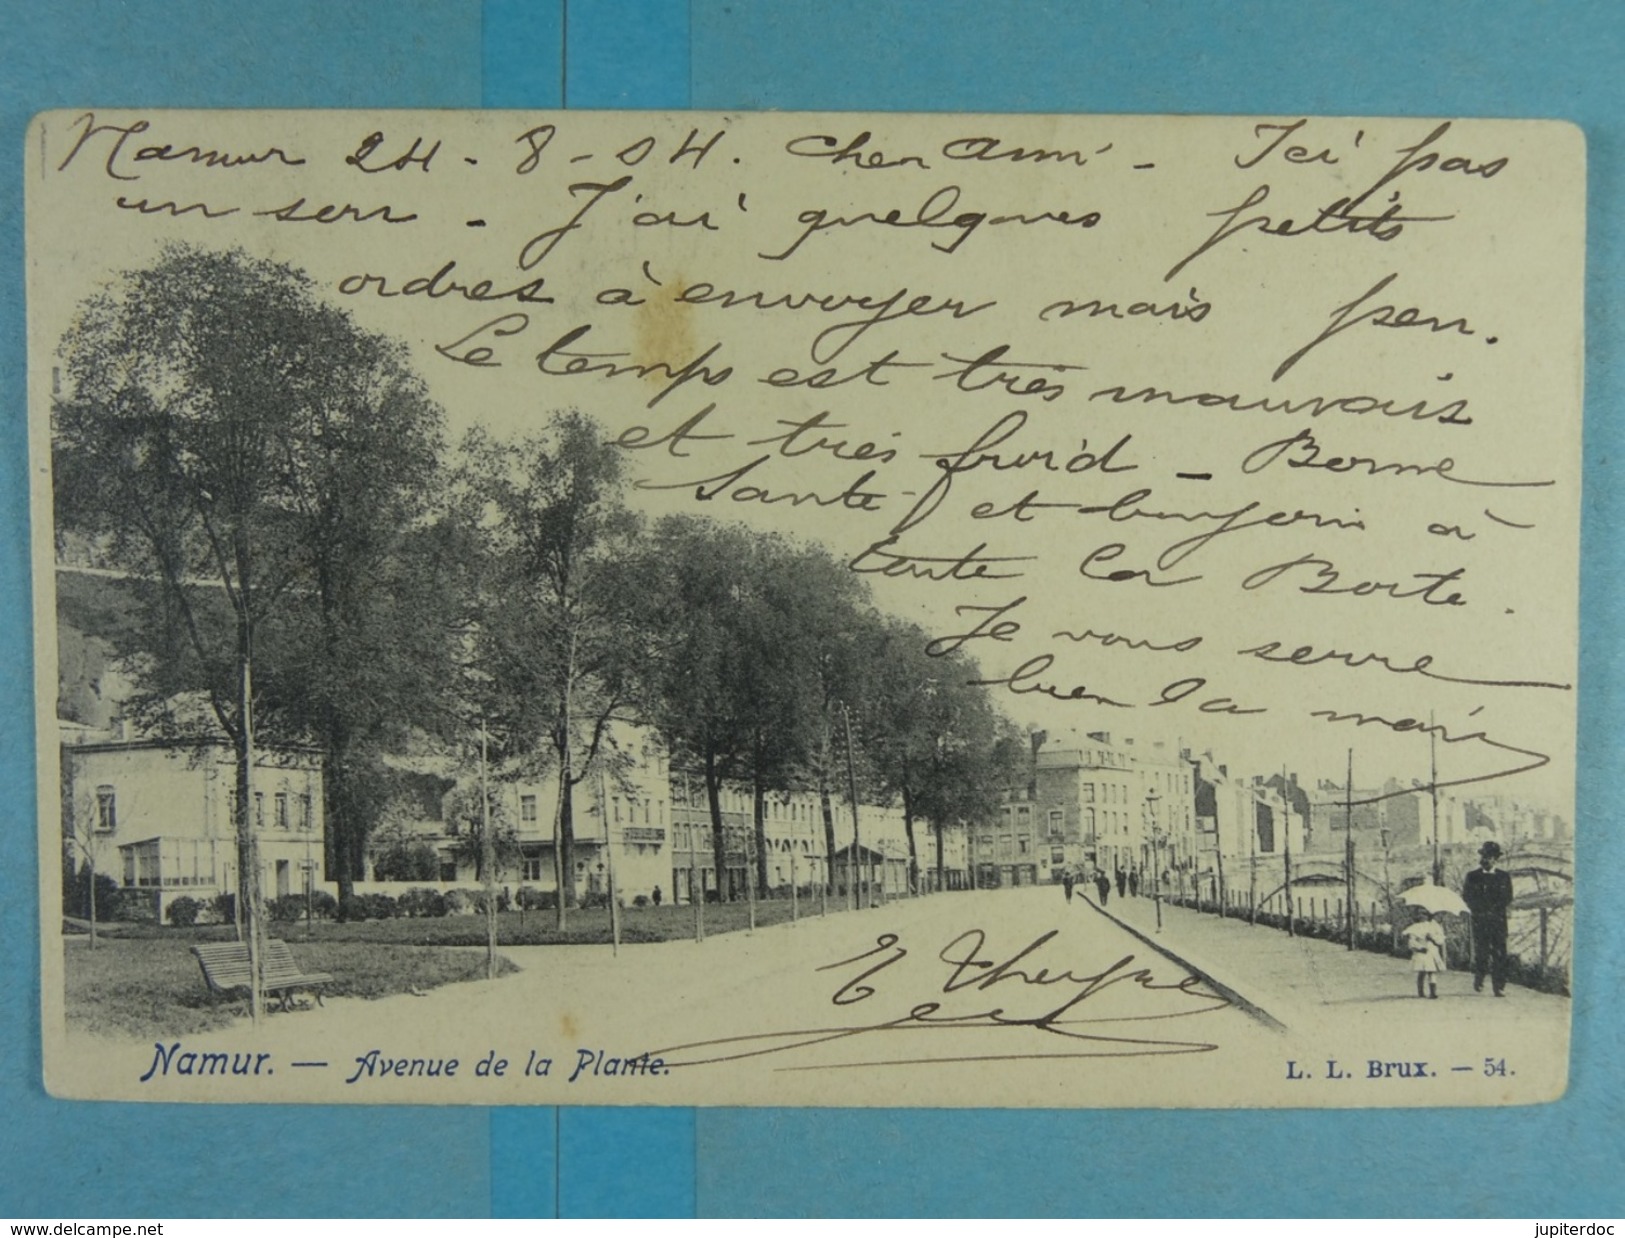 Namur 24-8-04. Cher Ami - Ici pas
un seu - J'ai quelques petits
ordres à envoyer mais peu.
Le temps est très mauvais
et très froid - Bonne
Santé et bonjour à
toute la Boite.
Je vous serre
bien la main
Namur. — Avenue de la Plante.
L. L. Brux. — 54.
www.delcampe.net
jupiterdoc